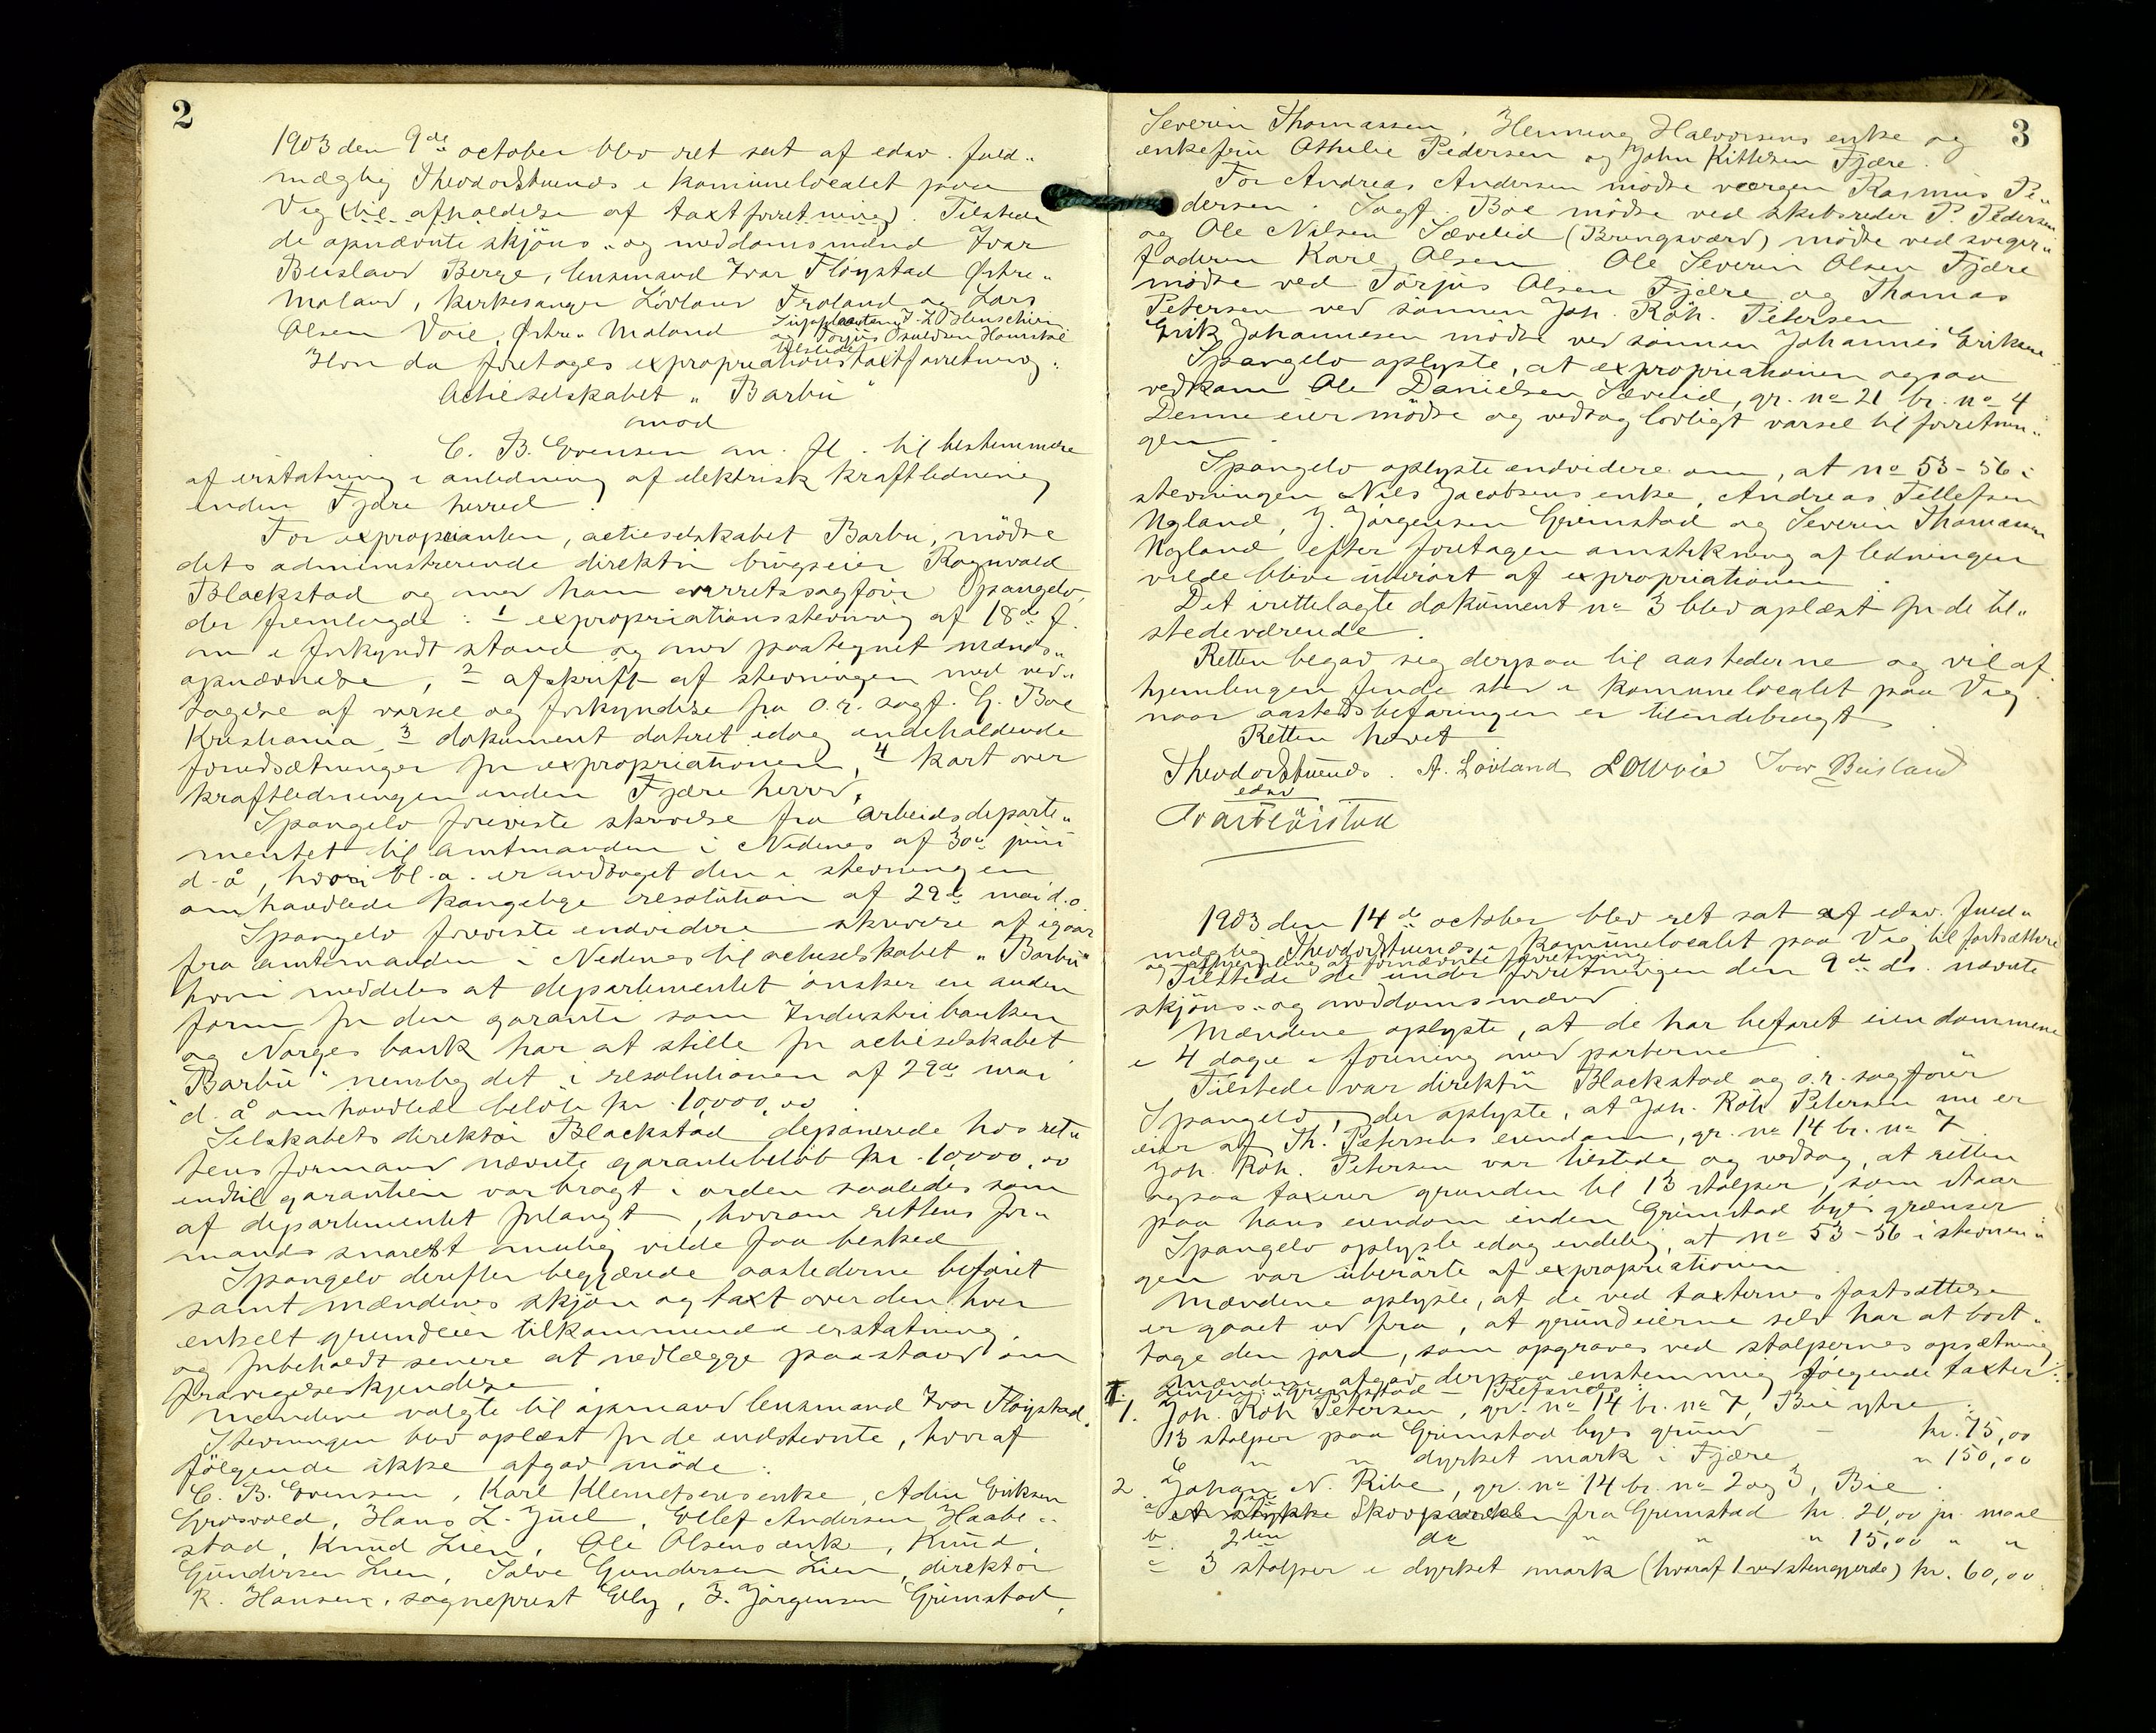 2
1903 den 9de october blev ret sat af edsv. fuld„
mægtig Theodor Stuenes i komunelocalet paa
Vig (til afholdelse af taxtforretning). Tilstede
de opnævnte skjöns„ og meddomsmænd Ivar
Beisland Berge, lensmand Ivar Flöystad Østre„
Moland, kirkesanger Lövland Froland og Lars
Olsen Voie, Østre„ Moland Suppleanterne J. L. Henschien
og Torjus Osuldsen Harnstöl
tilstede
Hvor da foretages expropriationstaxtforretning:
Actieselskabet „Barbu“
mod
C. B. Evensen m. fl. til bestemmelse
af erstatning i anledning af elektrisk kraftledning
inden Fjære herred.
For exproprianten, actieselskabet Barbu, mödte
dets administrerende direktör brugseier Ragnvald
Blackstad og med ham overretssagförer Spangelo,
der fremlagde: 1 expropriationsstevning af 18de f.
m. i forkyndt stand og med paategnet mænds„
opnævnelse, 2 afskrift af stevningen med ved„
tagelse af varsel og forkyndelse fra o.r. sagf. G. Boe
Kristiania 3 dokument dateret idag indeholdende
forudsætninger for expropriationen, 4 kart over
kraftledningen inden Fjære herred.
Spangelo foreviste skrivelse fra arbeidsdeparte„
mentet til amtmanden i Nedenes af 30te juni
d. å, hvori bl. a. er inddtaget den i stevningen
omhandlede kongelige resolution af 29de mai d. a.
Spangelo foreviste endvidere skrivelse af igaar
fra amtmanden i Nedenes til actieselskabet „Barbu“
hvori meddeles at departementet önsker en anden
form for den garanti som Industribanken
og Norges bank har at stille for actieselskabet
„Barbu“ nemlig det i resolutionen af 29de mai
d. å omhandlede belöb kr. 10,000,00
Selskabets direktör Blackstad deponerede hos ret„
tens formand nævnte garantibelöb kr. 10,000,00
indtil garantien var bragt i orden saaledes som
af departementet forlangt, hvorom rettens for„
mand snarest mulig vilde faa besked
Spangelo derefter begjærede aastederne befaret
samt mændenes skjön og taxt over den hver
enkelt grundeier tilkommende erstatning
og forbeholdt senere at nedlægge paastand om
fravigelseskjendelse
Mændene valgte til opmand lensmand Ivar Flöystad.
Stevningen blev oplæst for de indstevnte, hvoraf
fölgende ikke afgav möde:
C. B. Evensen, Karl Klemetsens enke, Adin Eriksen
Grösvold, Hans L. Juel, Ellef Andersen Haabe„
stad, Knud Lien, Ole Olsens enke, Knud
Gundersen Lien, Salve Gundersen Lien, direktör
R. Hansen, sogneprest Elly, J. Jörgensen Grimstad,
3
Severin Thomassen, Henning Halvorsens enke og
enkefru Othelie Pedersen og John Kittelsen Fjære.
For Andreas Andersen mödte værgen Rasmus Pe„
dersen. Sagf. Boe mödte ved skibsreder P. Pedersen
og Ole Nilsen Sævelid (Bringsværd) mödte ved sviger„
faderen Karl Olsen. Ole Severin Olsen Fjære
mödte ved Torjus Olsen Fjære og Thomas
Petersen ved sönnen Joh. Röh. Petersen
Erik Johannesen mödte ved sönnen Johannes Eriksen.
Spangelo oplyste, at expropriationen ogsaa
vedkom Ole Danielsen Sævelid, gr. no 21 br. no 4
Denne eier mödte og vedtog lovligt varsel til forretnin„
gen.
Spangelo oplyste endvidere om, at no 53-56 i
stevningen Nils Jacobsens enke, Andreas Tellefsen
Ugland, J. Jörgensen Grimstad og Severin Thomassen
Ugland efter foretagen omstikning af ledningen
vilde blive uberört af expropriationen.
Det irettelagte dokument no 3 blev oplæst for de til„
stedeværende.
Retten begav seg derpaa til aastederne og vil af
hjemlingen finde sted i komunelocalet paa Vig
naar aastedsbefaringen er tilendebragt
Retten hævet
Theodor Stuenes. A. Lövland LOWoie Ivar Beisland
edsv
Ivar Flöistad
1903 den 14de october blev ret sat af edsv. fuld„
mægtig Theodor Stuenes i komunelocalet paa Vig til fortsættelse
og afhjemling af fornævnte forretning.
Tilstede de under forretningen den 9de ds. nævnte
skjöns„ og meddomsmænd
Mændene oplyste, at de har befaret eiendommene
i 4 dage i forening med parterne
Tilstede var direktör Blackstad og o.r. sagförer
Spangelo, der oplyste, at Joh. Röh Petersen nu er
eier af Th. Petersens eiendom, gr. no 14 br. no 7
Joh. Röh. Petersen var tilstede og vedtog, at retten
ogsaa taxerer grunden til 13 stolper, som staar
paa hans eiendom inden Grimstad byes grænser
Spangelo oplyste idag endelig, at no 53-56 i stevnin„
gen var uberörte af expropriationen
Mændene oplyste, at de ved taxternes fastsættelse
er gaaet ud fra, at grundeierne selv har at bort„
tage den jord, som opgraves ved stolpernes opsætning.
Mændene afgav derpaa enstemmig fölgende taxter:
I. Linjen: Grimstad – Refanes:
1. Joh. Röh Petersen, gr. no 14 br. no 7, Bie ytre:
13 stolper paa Grimstad byes grund – kr. 75,00
6 „ „ dyrket mark i Fjære „ 150,00
2. Johan N. Ribe, gr. no 14 br. no 2 og 3, Bie.
a stykke Skov fra Grimstad kr. 20,00 pr. maal
b. 2den do „ „ „ 15,00 „ „
c 3 stolper i dyrket mark (hvoraf 1 ved stengjerde) kr. 60,00